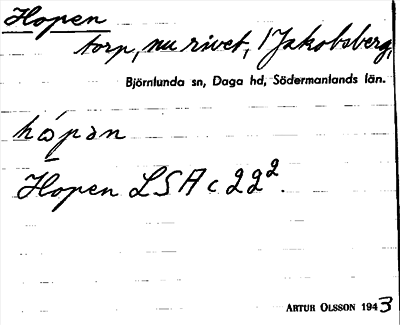 Hopen
torp, nu rivet, / Jakobsberg,
Björnlunda sn, Daga hd, Södermanlands län.
hópan
Hopen LSA c 22².
ARTUR OLSSON 1943